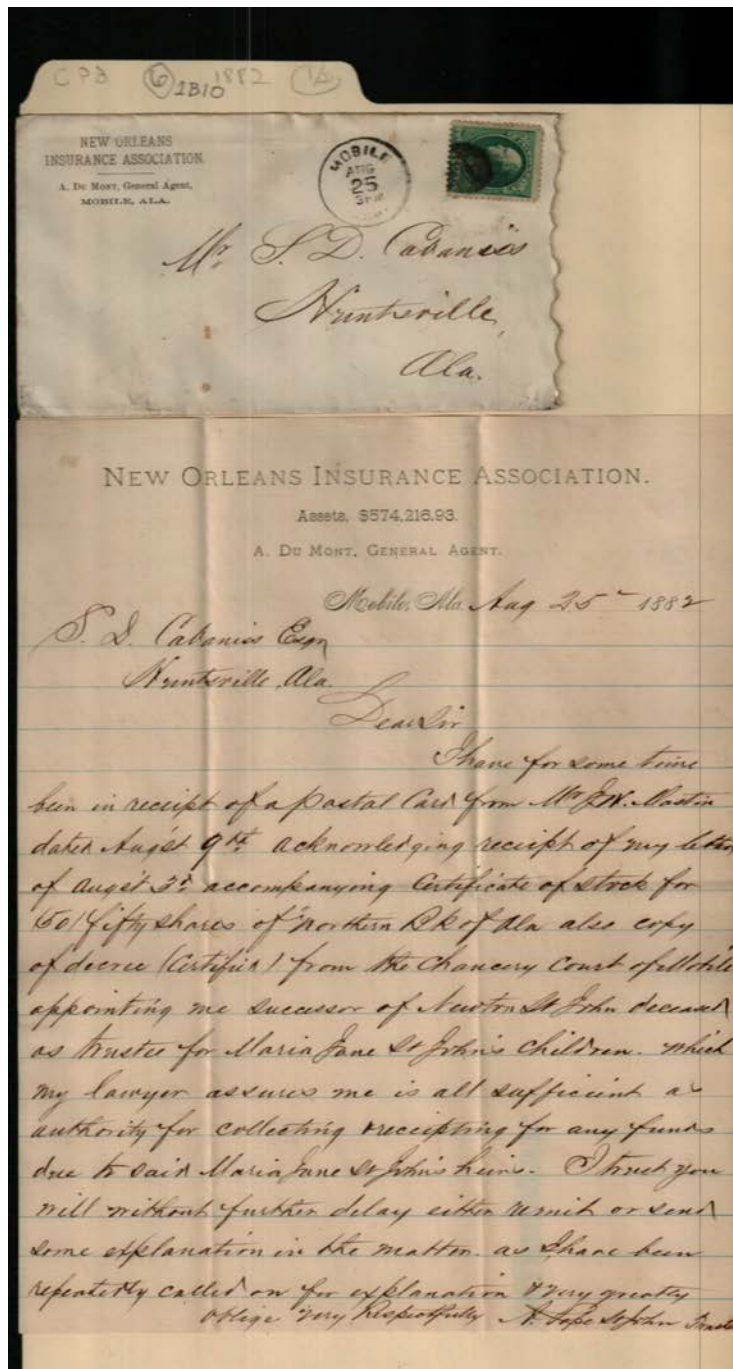 CPB 6 1B10 1882
NEW ORLEANS
INSURANCE ASSOCIATION.
A. DU MONT, General Agent,
MOBILE, ALA.
MOBILE
AUG
25
3PM
Mr. S. D. Cabaniss
Huntsville,
Ala.
NEW ORLEANS INSURANCE ASSOCIATION.
Assets, $574,216.93.
A. DU MONT, GENERAL AGENT.
Mobile, Ala. Aug 25th 1882
S. D. Cabaniss Esqr
Huntsville, Ala.
Dear Sir
I have for some time
been in receipt of a Postal Card from Mr J.W. Mastin
dated Augst 9th acknowledging receipt of my letter
of Augst 3d accompanying Certificate of stock for
(50) fifty shares of Northern Bk of Ala also copy
of decree (Certified) from the Chancery Court of Mobile
appointing me successor of Newton St John deceased
as trustee for Maria Jane St John's Children. which
my lawyer assures me is all sufficient as
authority for collecting & receipting for any funds
due to said Maria Jane St John's heirs. I trust you
will without further delay either remit or send
some explanation in the matter. as I have been
repeatedly called on for explanation & very greatly
oblige Very Respectfully N. Pope St John Trustee